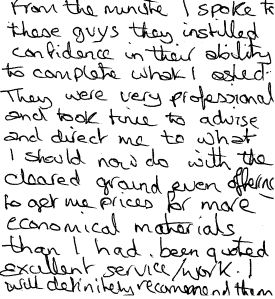 From the minute I spoke to
these guys they instilled
confidence in their ability
to complete what I asked.
They were very professional
and took time to advise
and direct me to what
I should now do with the
cleared ground even offering
to get me prices for more
economical materials
than I had been quoted
excellent service/work. I
will definitely recommend them